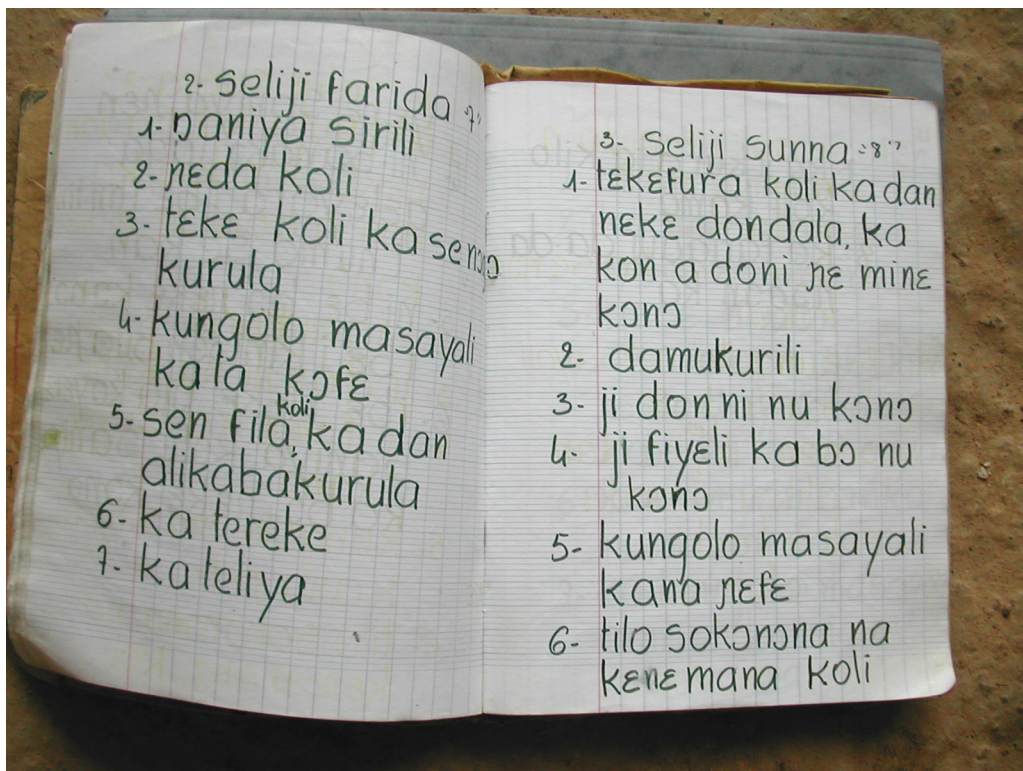 2- seliji farida "7"
1- ŋaniya sirili
2- ɲɛda koli
3- tɛkɛ koli ka senɔŋɔ
kurula
4- kungolo masayali
ka ta kɔfɛ
koli
5- sen fila, ka dan
alikabakurula
6- ka tereke
7- ka teliya
3- seliji sunna = "8"
1- tɛkɛfura koli ka dan
nɛkɛ dondala, ka
kon a doni ɲɛ minɛ
kɔnɔ
2- damukurili
3- ji don ni nu kɔnɔ
4- ji fiyɛli ka bɔ nu
kɔnɔ
5- kungolo masayali
kana ɲɛfɛ
6- tilo sokɔnɔna na
kɛnɛ mana koli